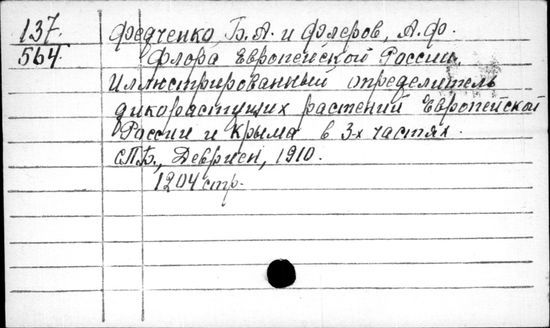 137. Федченко, Б.А. и Флеров, А.Ф.
564 Флора Европейской России.
Иллюстрированный определитель
дикорастущих растений Европейской
России и Крыма в 3-х частях.
СПБ., Девриен, 1910.
1204 стр.